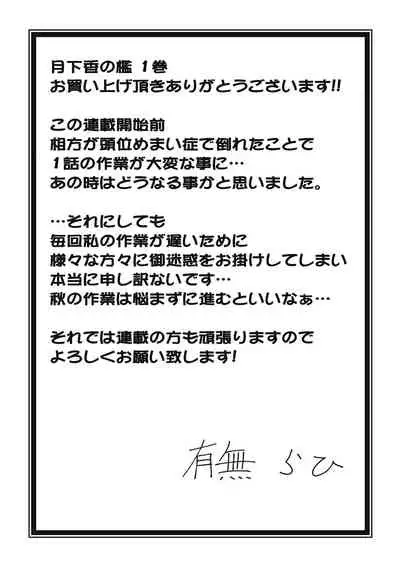 月下香の檻 1巻
お買い上げ頂きありがとうございます!!
この連載開始前
相方が頭位めまい症で倒れたことで
1話の作業が大変な事に…
あの時はどうなる事かと思いました。
…それにしても
毎回私の作業が遅いために
様々な方々に御迷惑をお掛けしてしまい
本当に申し訳ないです…
秋の作業は悩まずに進むといいなぁ…
それでは連載の方も頑張りますので
よろしくお願い致します!
有無 らひ